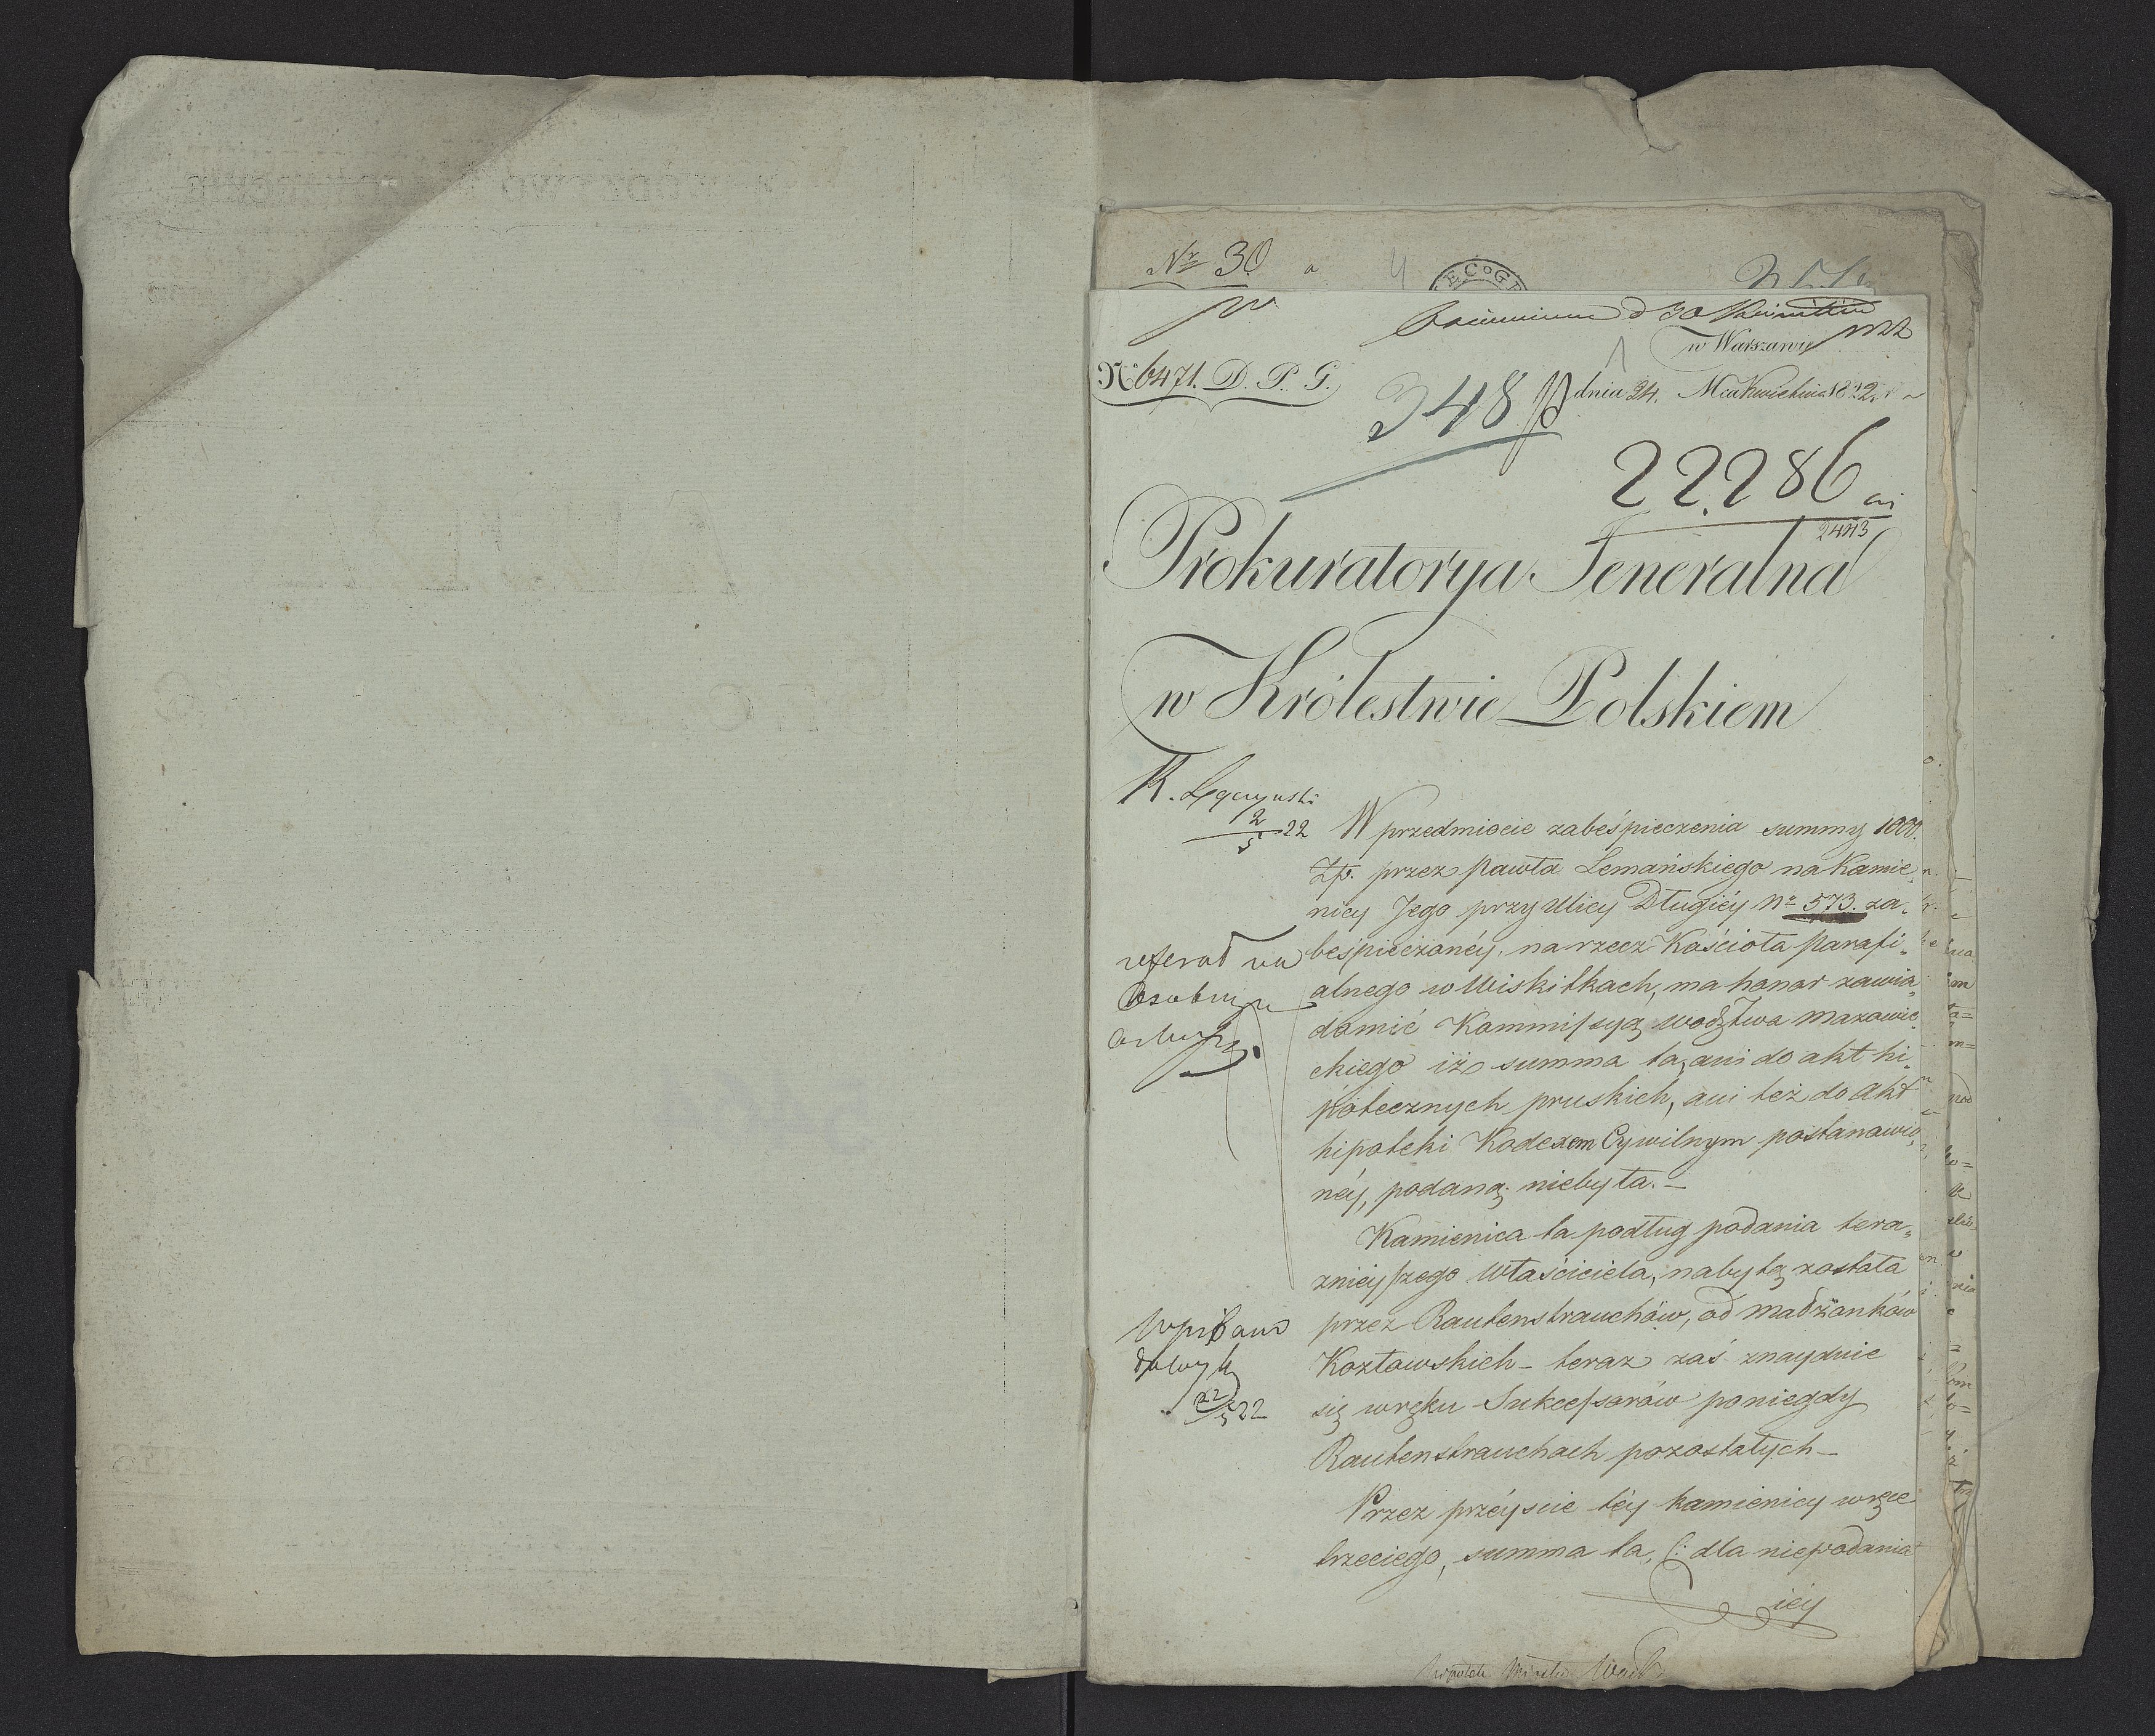 Nr 30
w Warszawie
No 6471. D. P. G.
348
dnia 24. Mca Kwietnia 1822.
22.286
Prokuratorya Jeneralna
w Królestwie Polskiem
2/5 22
W przedmiocie zabeśpieczenia summy 1000.
Zp. przez Pawła Lemańskiego na Kamie„
nicy Jego przy Ulicy Długiéy No 573. za„
beśpieczonéy, na rzecz Kościoła Parafi„
referat na
alnego w Wiskitkach, ma honor zawia„
domić Kommissyą Wodztwa Mazowie„
ckiego iż summa ta, ani do akt hi„
potecznych pruskich, ani też do Akt
hipoteki Kodexem Cywilnym postanowio„
néy, podaną niebyła.–
Kamienica ta podług podania tera„
znieyszego Właściciela, nabytą została
przez Rautenstrauchów, od małżonków
Kozłowskich – teraz zaś znayduie
się w ręku Sukcessorów po niegdy
22/5 22
Rautenstrauchach pozostałych –
Przez przeście téy kamienicy w ręce
trzeciego, summa ta, (: dla niepodania
iéy